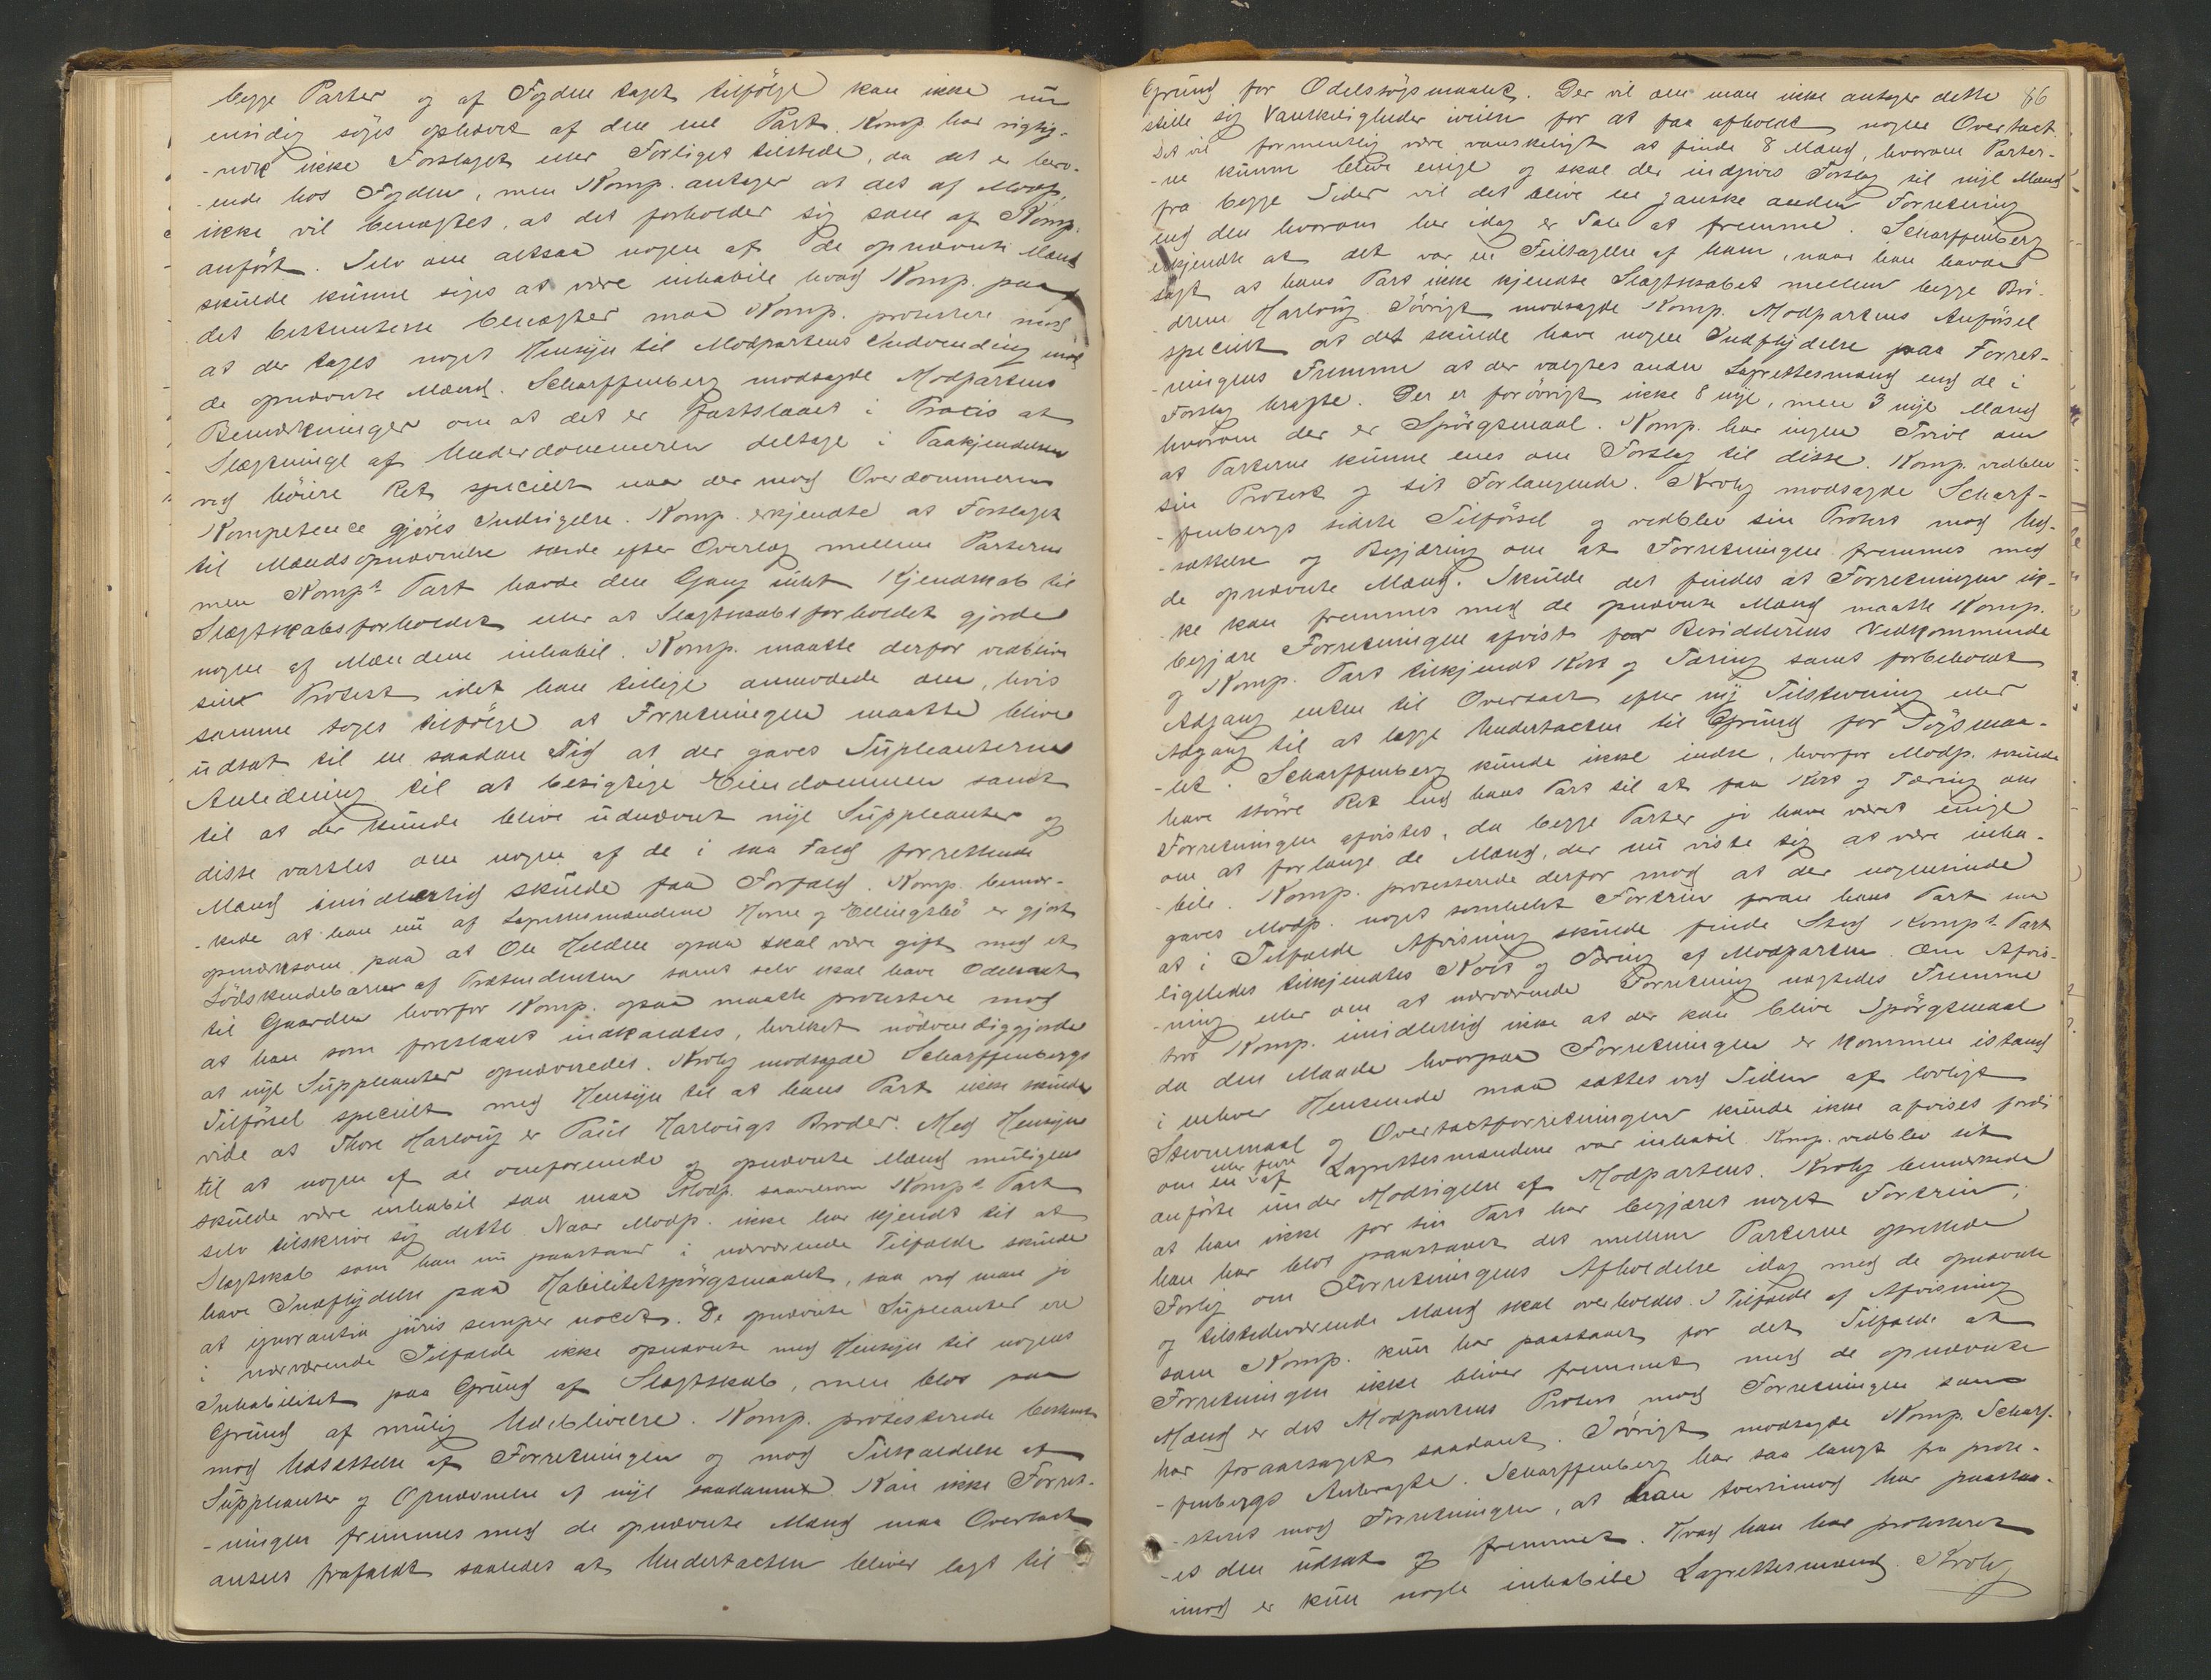 begge Parter og af Fogden taget tilfölge kan ikke nu
ensidig söges ophævet af den ene Part. Komp har rigtig-
-nok ikke Forslaget eller Forliget tilstede, da det er bero-
-ende hos Fogden, men Komp. antager at det af Modp.
ikke vil benægtes, at det forholder sig som af Komp.
anfört. Selv om altsaa nogen af de opnævnte Mænd
skulde kunne siges at være inhabile hvad Komp. paa
det bestemteste benægter maa Komp. protestere mod
at der tages noget Hensyn til Modpartens Indvending mod
de opnævnte Mænd. Scharffenberg modsagde Modpartens
Bemærkninger om at det er fastslaaet i Praxis at
Slægtninge af Underdommeren deltage i Paakjendelsen
ved höiere Ret specielt naar der mod Overdommerens
Kompetence gjöres Indsigelse. Komp. erkjendte at Forslaget
til Mændsopnævnelse skede efter Overlæg mellem Parterne
men Komp^s Part havde den Gang intet Kjendskab til
Slægtskabsforholdet eller at Slægtskabsforholdet gjorde
nogen af Mændene inhabil. Komp. maatte derfor vedblive
sin Protest idet han tillige anmodede om, hvis
samme toges tilfölge at Forretningen maatte blive
udsat til en saadan Tid at der gaves Supleanterne
Anledning til at besigtige Eiendommen samt
til at der kunde blive udnævnt nye Suppleanter og
disse varsles om nogen af de i saa Fald forrettende
Mænd imidlertid skulde faa Forfald. Komp. bemær-
-kede at han nu af Lagrettesmændene Horne og Ellingsbö er gjort
opmærksom paa at Ole Helden ogsaa skal være gift med et
Södskendebarn af Prætendenten samt selv skal have Odelsret
til Gaarden hvorfor Komp. ogsaa maatte protestere mod
at han som foreslaaet indkaldtes, hvilket nödvendiggjorde
at nye Suppleanter opnævnedes. Kroby modsagde Scharffenbergs
Tilförsel specielt med Hensyn til at hans Part ikke skulde
vide at Thore Harloug er Paul Harlougs Broder. Med Hensyn
til at nogen af de omforenede og opnævnte Mænd muligens
skulde være inhabil saa maa Modp. saavelsom Komp^s Part
selv tilskrive sig dette. Naar Modp. ikke har kjendt til at
Slægtskab som han nu paastaar i nærværende Tilfælde skulde
have Indflydelse paa Habilitetspörgsmaalet, saa ved man jo
at ignorantia juris semper nocet. De opnævnte Supleanter ere
i nærværende Tilfælde ikke opnævnte med Hensyn til nogens
Inhabilitet paa Grund af Slægtskab, men blot paa
Grund af mulig Udeblivelse. Komp. protesterede bestemt
mod Udsættelse af Forretningen og mod Tilkaldelse af
Suppleanter og Opnævnelse af nye saadanne. Kan ikke Forret-
-ningen fremmes med de opnævnte Mænd maa Overtaxt
ansees frafaldt saaledes at Undertaxten bliver lagt til
Grund for Odelssögsmaalet. Der vil om man ikke antager dette 86
stille sig Vanskeligheder iveien for at faa afholdt nogen Overtaxt.
Det vil formentlig være vanskeligt at finde 8 Mænd, hvorom Parter-
-ne kunne blive enige og skal der indgives Forslag til nye Mænd
fra begge Sider vil det blive en ganske anden Forretning
end den hvorom her idag er Tale at fremme. Scharffenberg
erkjendte at det var en Feiltagelse af ham, naar han havde
sagt at hans Part ikke kjendte Slægtskabet mellem begge Brö-
-drene Harloug. Iövrigt modsagde Komp. Modpartens Anförsel
specielt at det skulde have nogen Indflydelse paa Forret-
-ningens Fremme at der valgtes anden Lagrettesmænd end de i
Forslag bragte. Der er forövrigt ikke 8 nye, men 3 nye Mænd
hvorom der er Spörgsmaal. Komp. har ingen Tvivl om
at Parterne kunne enes om Forslag til disse. Komp. vedblev
sin Protest og sit Forlangende. Kroby modsagde Scharf-
-fenbergs sidste Tilförsel og vedblev sin Protest mod Ud-
-sættelse og Begjæring om at Forretningen fremmes med
de opnævnte Mænd. Skulde det findes at Forretningen ik-
-ke kan fremmes med de opnævnte Mænd maatte Komp.
begjære Forretningen afvist for Besidderens Vedkommende
og Komp. Part tilkjendt Kost og Tæring samt forbeholdt
Adgang enten til Overtaxt efter ny Tilstevning eller
Adgang til at lægge Undertaxten til Grund for Sögsmaa-
-let. Scharffenberg kunde ikke indse, hvorfor Modp. skulde
have större Ret end hans Part til at faa Kost og Tæring om
Forretningen afvistes, da begge Parter jo have været enige
om at forlange de Mænd, der nu viste sig at være inha-
-bile. Komp. protesterede derfor mod at der nogensinde
gaves Modp. noget somhelst Fortrin foran hans Part om
at i Tilfælde Afvisning skulde finde Sted Komp^s Part
ligeledes tilkjendtes Kost og Tæring af Modparten. Om Afvis-
-ning eller om at nærværende Forretning nægtedes Fremme
tror Komp. imidlertid ikke at der kan blive Spörgsmaal
da den Maade hvorpaa Forretningen er kommen istand
i enhver Henseende maa sættes ved Siden af lovligt
Stevnemaal og Overtaxtforretningen kunde ikke afvises fordi
om en eller flere af Lagrettesmændene var inhabil. Komp. vedblev sit
anförte under Modsigelse af Modpartens. Kroby bemærkede
at han ikke for sin Part har begjæret noget Fortrin;
han har blot paastaaet det mellem Parterne oprettede
Forlig om Forretningens Afholdelse idag med de opnævnte
og tilstedeværende Mænd skal overholdes. I Tilfælde af Afvisning
som Komp. kun har paastaaet for det Tilfælde at
Forretningen ikke bliver fremmet med de opnævnte
Mænd er det Modpartens Protest mod Forretningen som
har foraarsaget saadant. Iövrigt modsagde Komp. Scharf-
-fenbergs Anbragte. Scharffenberg har saa langt fra prote-
-steret mod Forretningen, at han tvertimod har paastaa-
-et den udsat og fremmet. Hvad han har protesteret
imod er kun nogle inhabile Lagrettesmænd. Kroby